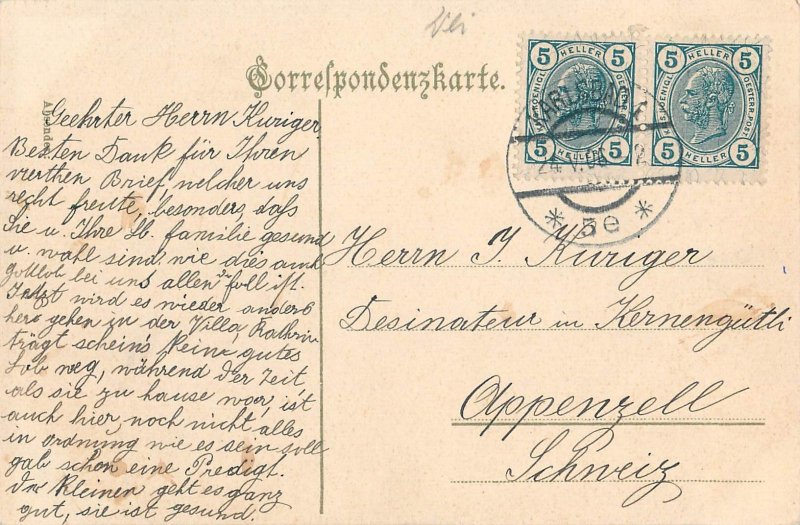 Correspondenzkarte.
5 HELLER 5
5 HELLER 5
5 HELLER 5
5 HELLER 5
* 5e *
Geehrter Herrn Kuriger
Besten Dank für Ihren
werthen Brief, welcher uns
recht freute, besonders, daß
Sie u. Ihre lb. familie gesund
u. wohl sind wie dies auch
gottlob bei uns allen der Fall ist.
Jetzt wird es wieder anders
her gehen in der Villa, Kathrin
trägt scheins keine gutes
Lob weg, während der Zeit,
als sie zu hause war, ist
auch hier noch nicht alles
in ordnung wie es sein soll
gab schon eine Predigt.
Der Kleinen geht es ganz
gut, sie ist gesund.
Herrn J. Kuriger
Desinateur in Kernengütli
Appenzell
Schweiz